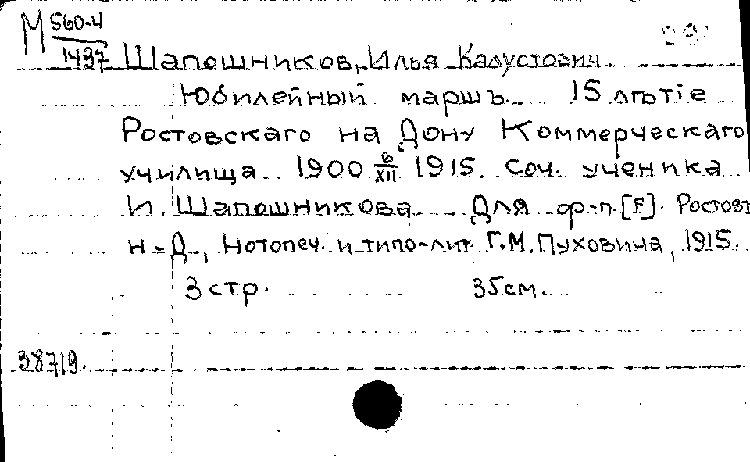 М 560-4
1437 Шапошников, Илья Калустович
Юбилейный маршъ. 15 лѣтіе
Ростовскаго на Дону Коммерческаго
училища. 1900 6/XII 1915. Соч. ученика
И. Шапошникова. Для ф-п. [F]. Ростовъ
н-Д., Нотопеч. и типо-лит. Г.М. Пуховича, 1915.
3 стр. 35 см.
38719.